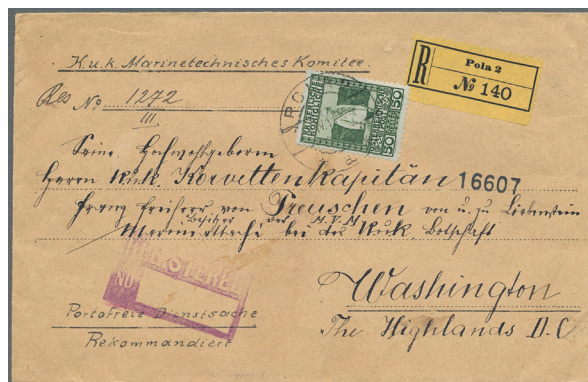 K.u.k. Marinetechnisches Komitee.
Res No 1272
III
R
Pola 2
No 140
50
50
Seine Hochwohlgeboren
Herrn k.u.k. Korvettenkapitän
16607
Franz Freiherr von Preuschen von u. zu Liebenstein
Marineattaché bei der k.u.k. Botschaft
Washington
The Highlands D.C.
Portofreie Dienstsache
Rekommandiert